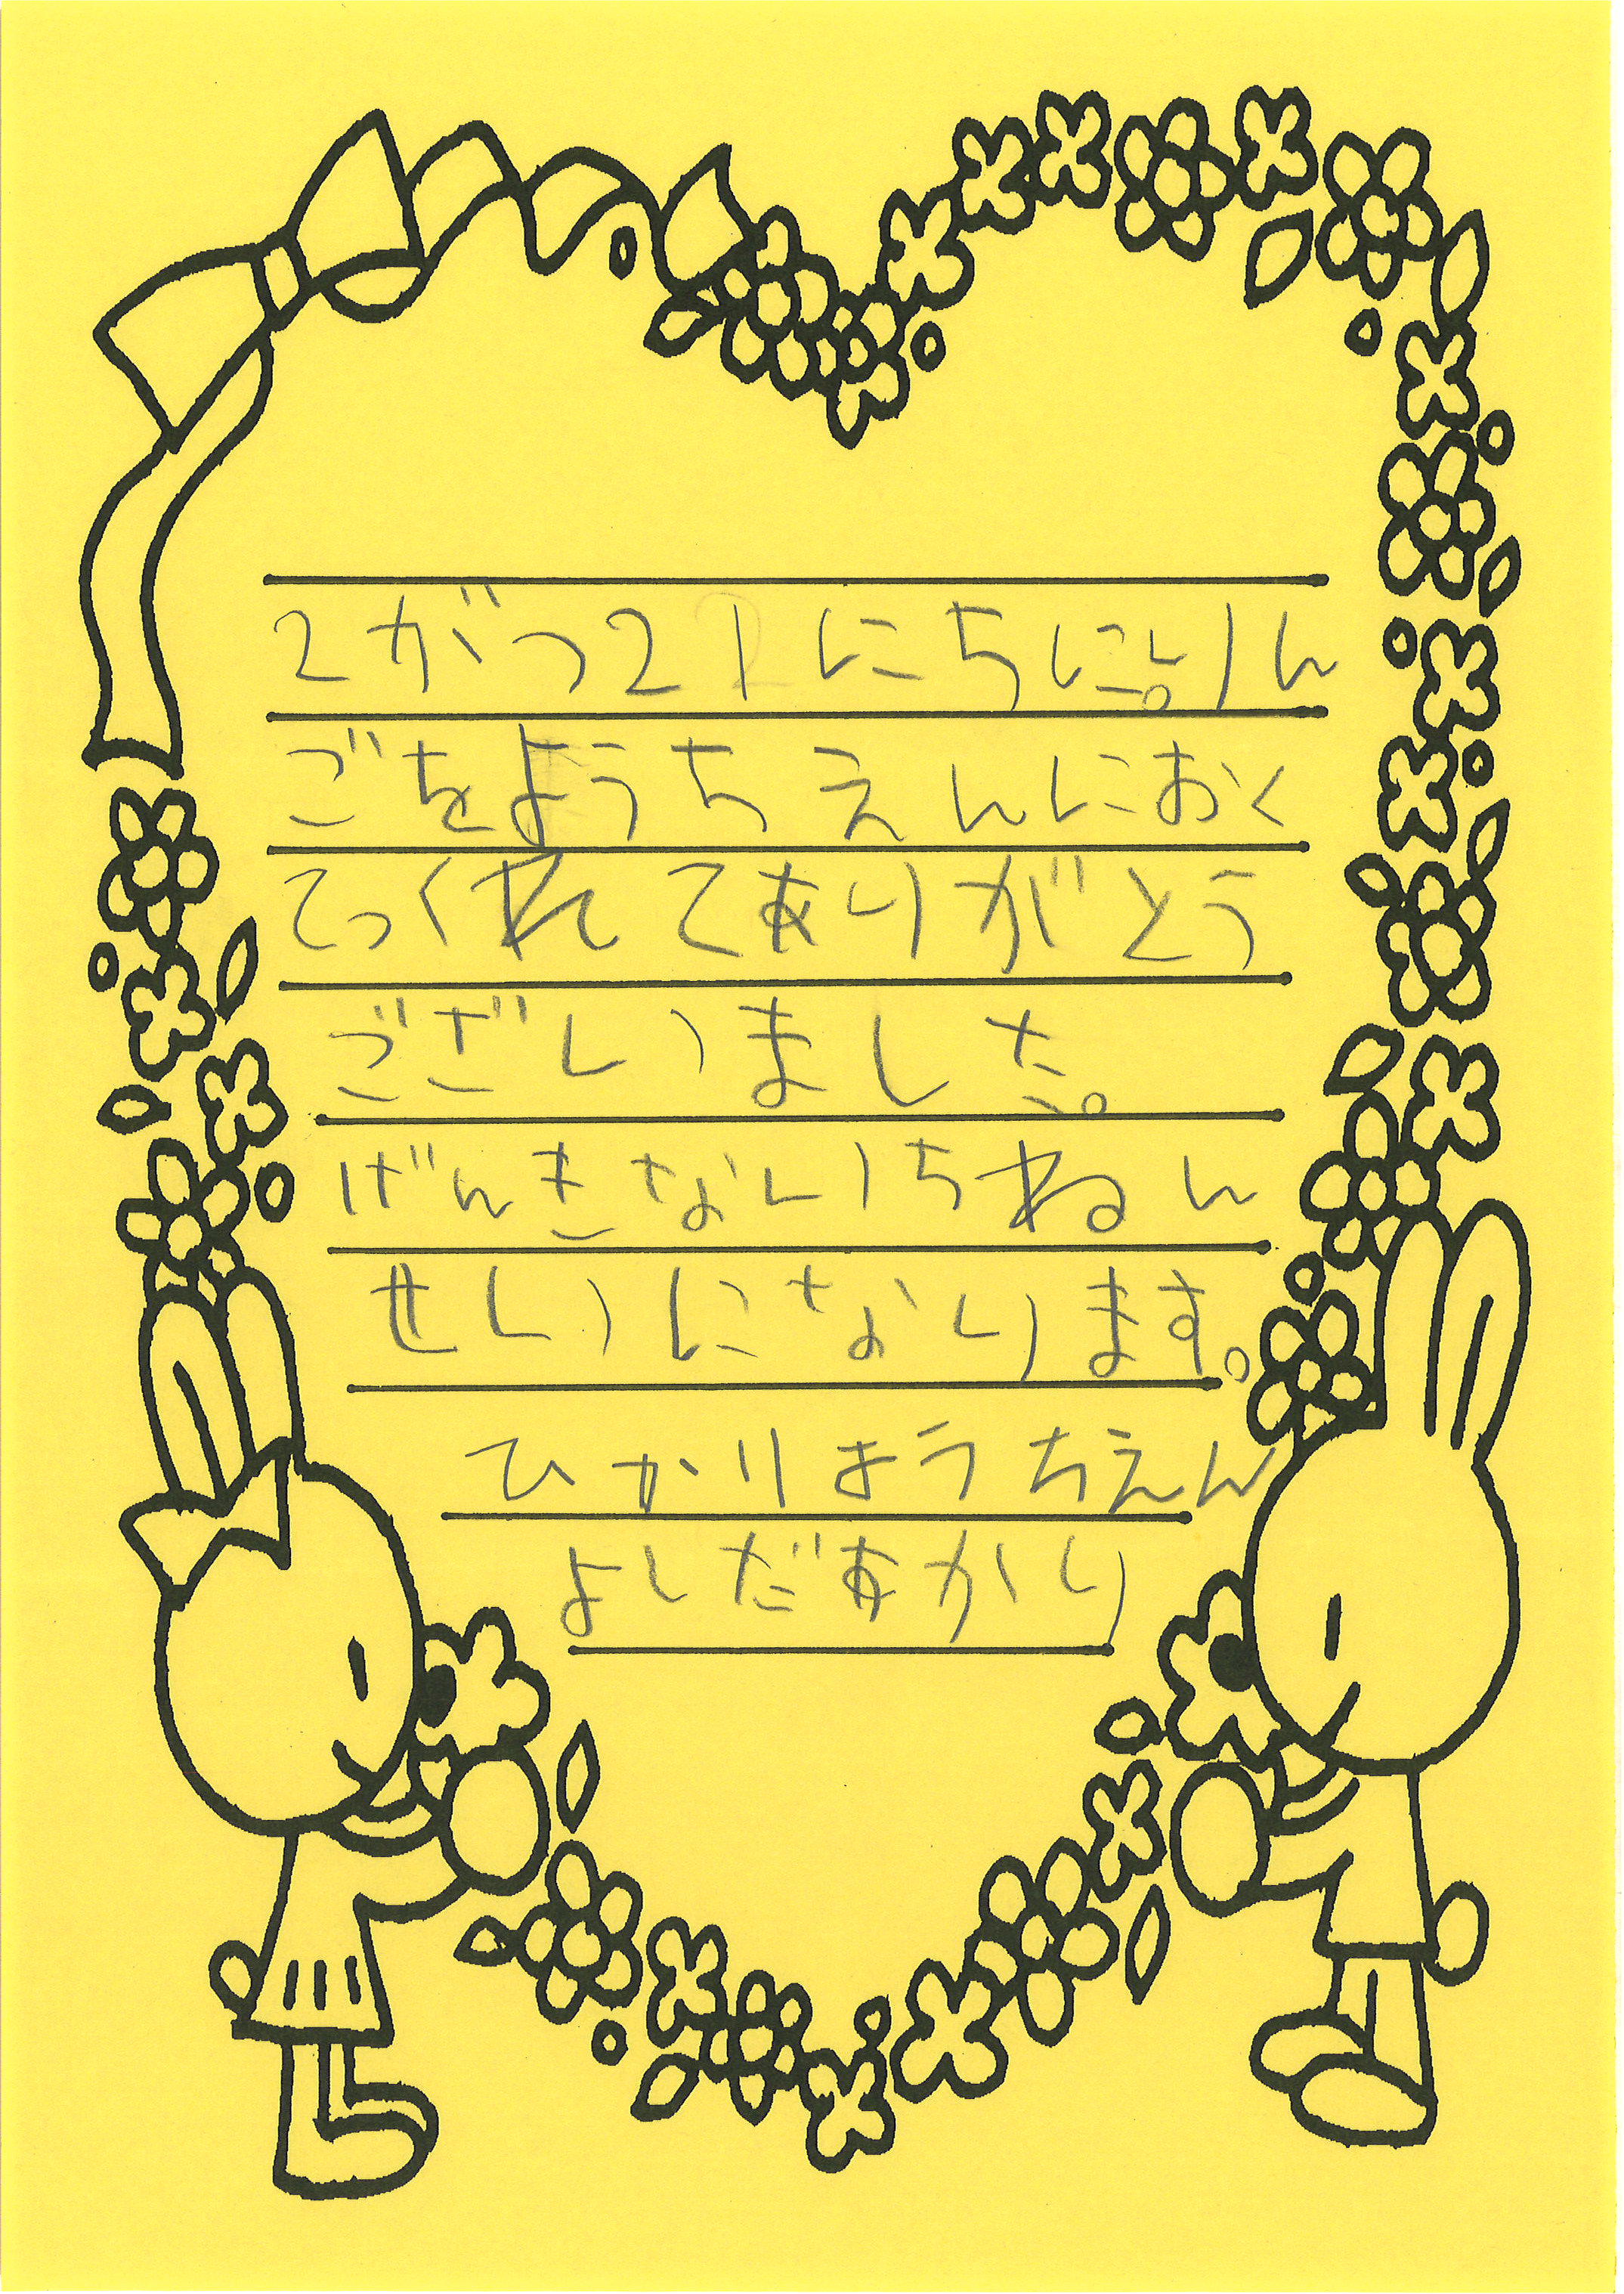 2がつ21にちに。りん
ごをようちえんにおく
てっくれてありがとう
ございました。
げんきないちねん
せいになります。
ひかりようちえん
よしだあかり